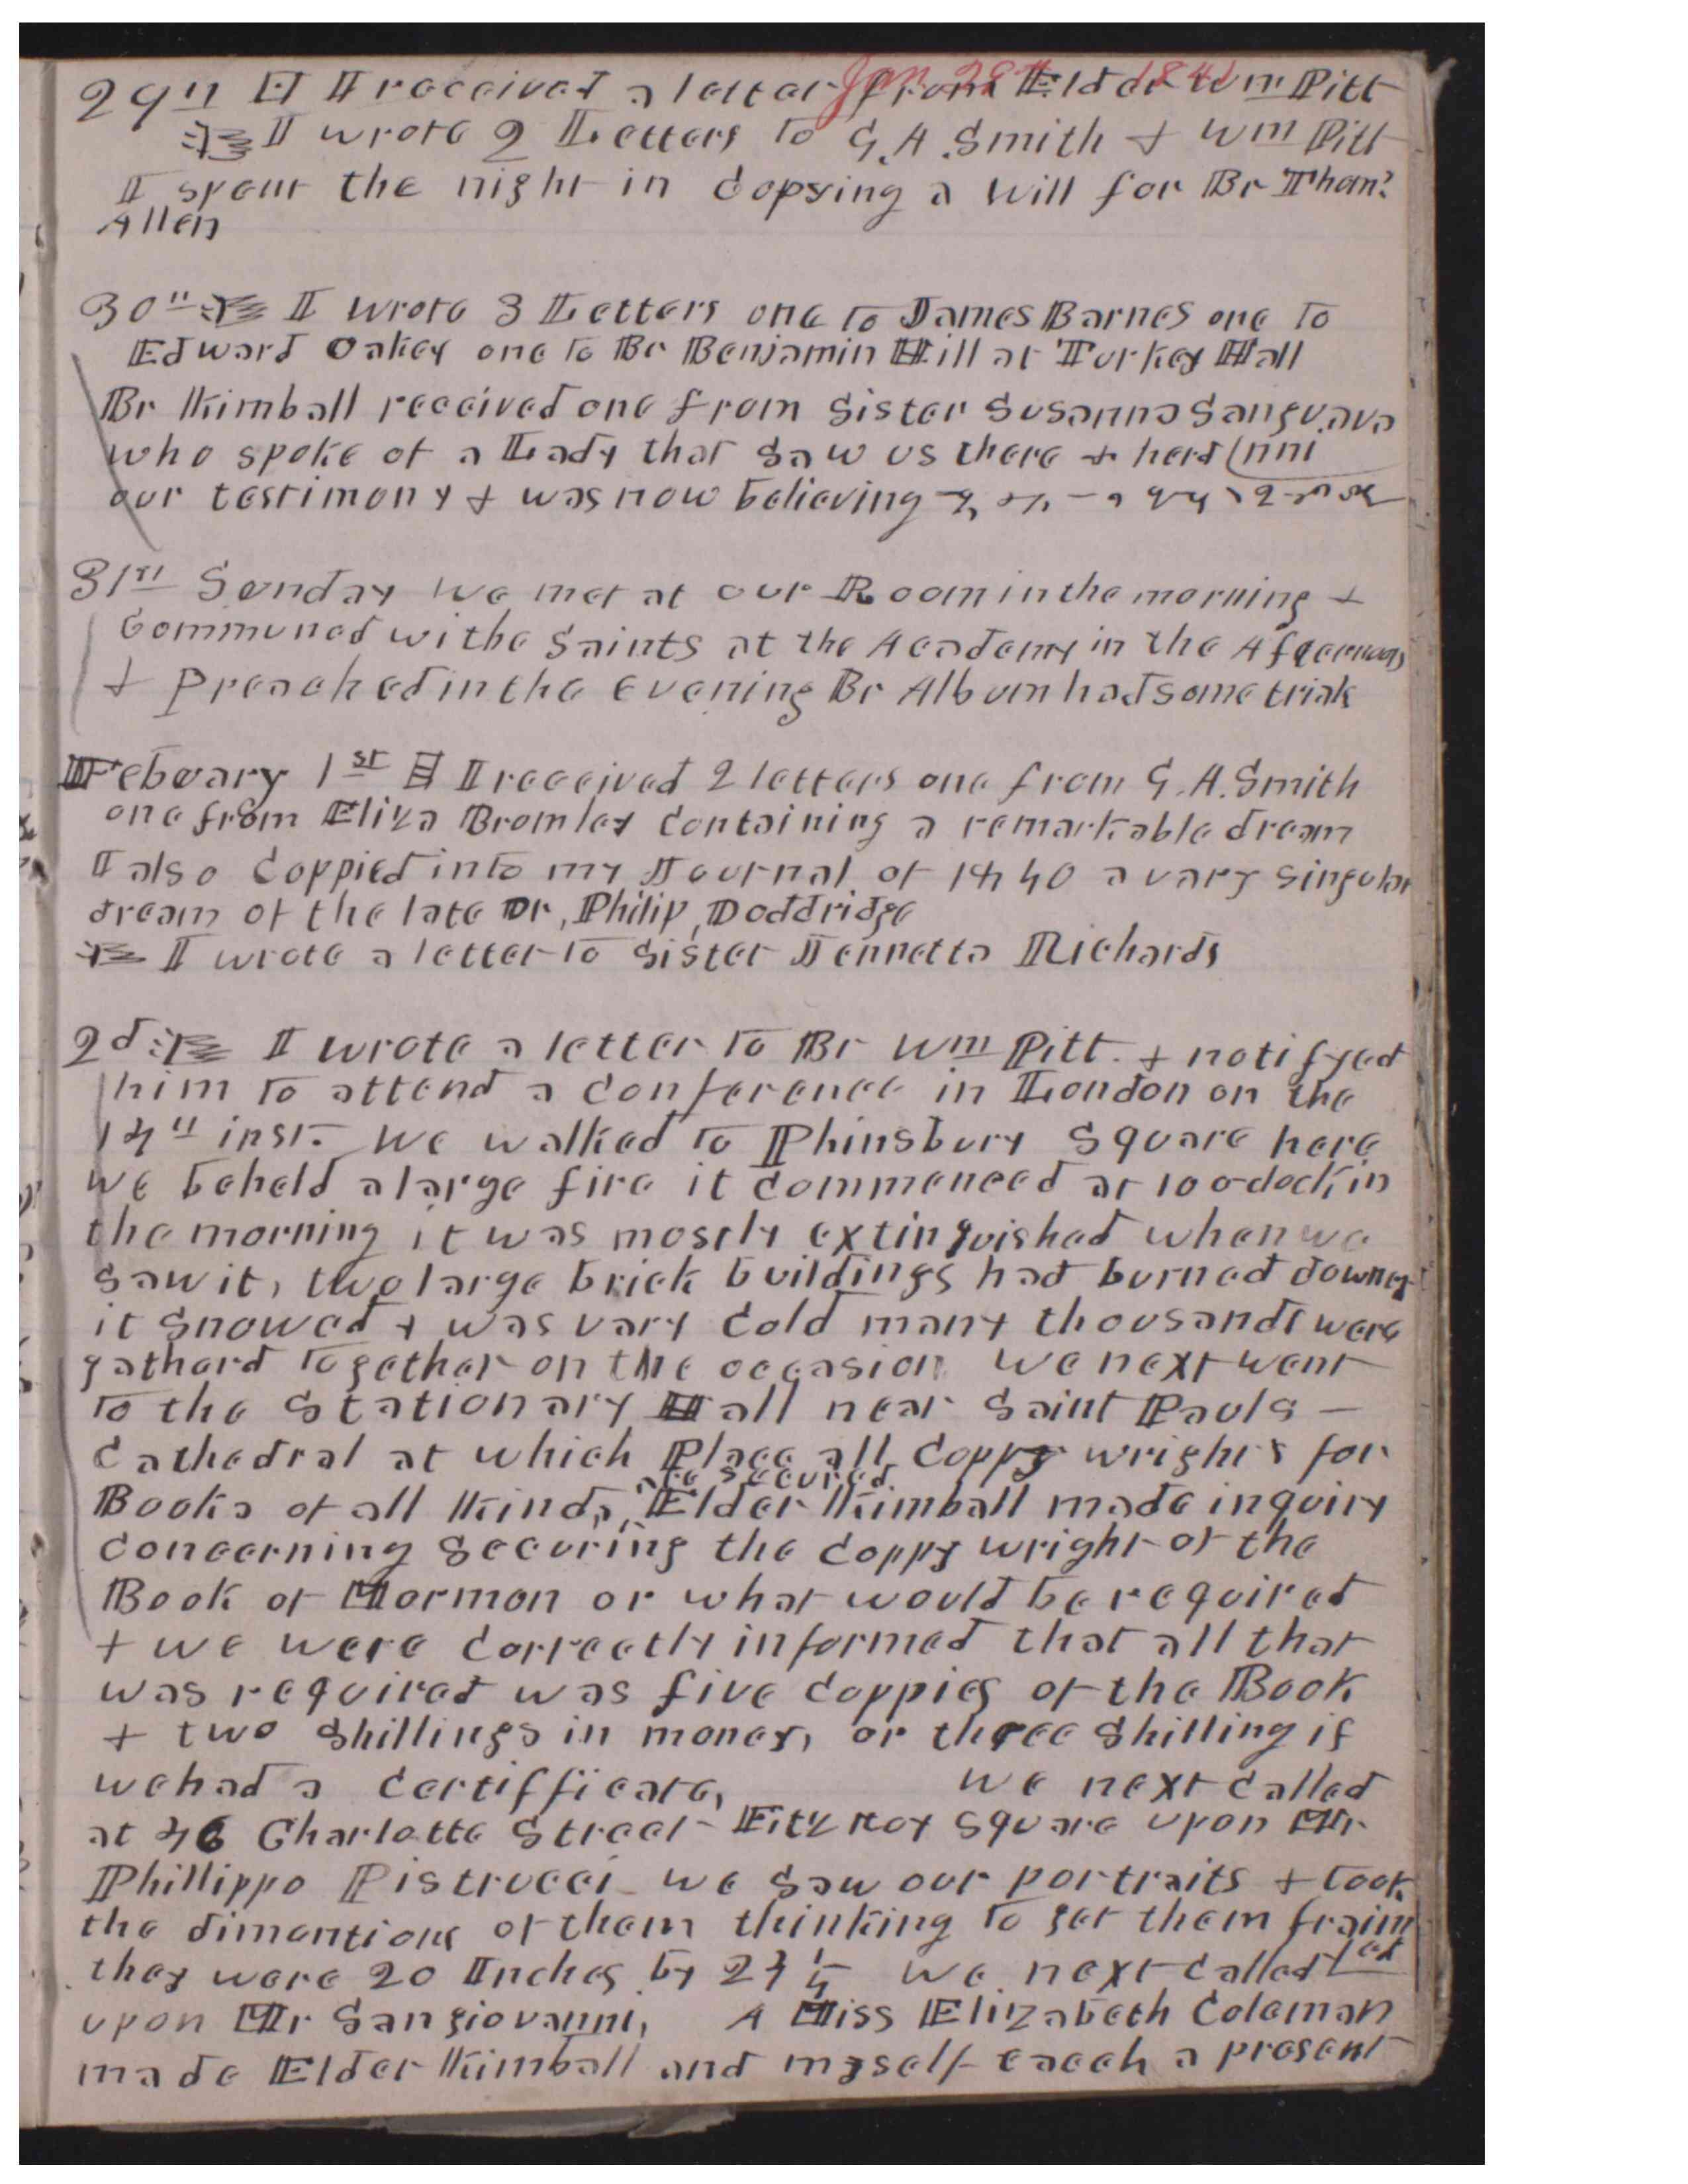 Jan. 29th 1841
29" I received a letter from Elder Wm Pitt
I wrote 2 Letters to G. A. Smith + Wm Pitt
I spent the night in Copying a will for Br Thom?
Allen
30" I wrote 3 Letters one to James Barnes one to
Edward Oakey one to Br Benjamin Hill at Turkey Hall
Br Kimball received one from Sister Susanna Sangiova
who spoke of a Lady that Saw us there + herd (nni
our testimony + was now believing
31st Sunday We met at our Room in the morning +
Communed withe Saints at the Academy in the Afternoon
+ Preached in the Evening Br Album had some trials
Febuary 1st I received 2 letters one from G. A. Smith
one from Eliza Bromley Containing a remarkable dream
I also Coppied into my Journal of 1840 a vary singular
dream of the late Dr, Philip, Doddridge
I wrote a letter to Sister Jennetta Richards
2d I wrote a letter to Br Wm Pitt. + notifyed
him to attend a Conference in London on the
14" inst. We walked to Phinsbury Square here
we beheld a large fire it Commenced at 10 o-clock, in
the morning it was mostly extinguished when we
saw it, two large brick buildings had burned down
it Snowed + was vary Cold many thousands were
gatherd together on the occasion We next went
to the Stationary Hall near Saint Pauls -
Cathedral at which Place all Coppy wrights for
are secured
Books of all Kinds, Elder Kimball made inquiry
Concerning Securing the Coppy wright of the
Book of Mormon or what would be required
+ we were Correctly informed that all that
was required was five Coppies of the Book
+ two Shillings in money, or three Shilling if
we had a Certifficate, We next Called
at 46 Charlotte Street Fitz Roy Square upon Mr
Phillippo Pistrucci we Saw our portraits + took
the dimentions of them thinking to get them fraim
they were 20 Inches by 24 1/4 We next Called ed
upon Mr Sangiovanni, A Miss Elizabeth Coleman
made Elder Kimball and myself eaceh a present